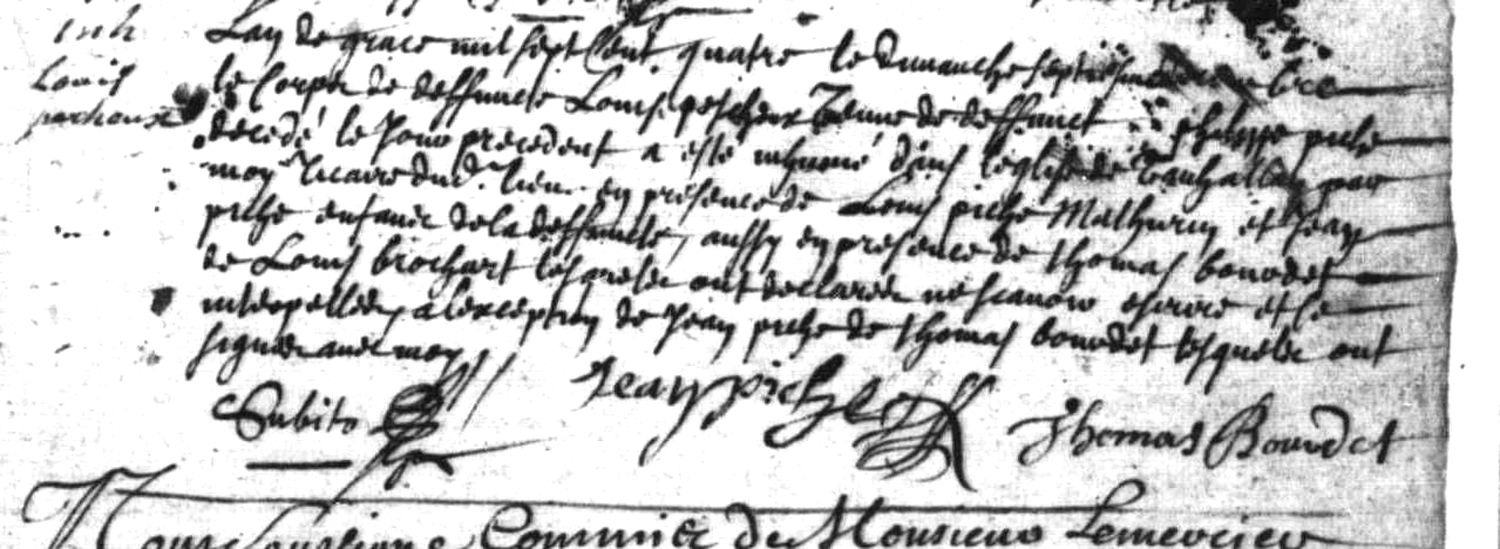 inh
Louis
L'an de grace mil sept cent quatre le dimanche septiesme
le corps de deffuncte Louise pescheux veuve de deffunct philippe piche
decedé le Jour precedent a esté inhumé dans l'eglise de par
moy Vicaire dud. lieu en presence de Louis piche Mathurin et Jean
piche enfans de la deffuncte, aussy en presence de thomas bourdet
de Louis brochart lesquels ont declarer ne scavoir escrire et ce
interpeller, a l'exception de Jean piche de thomas bourdet lesquels ont
signer avec moy
Subito Jean piche Thomas Bourdet
Nous soussigné Commier de Monsieur Lemercier